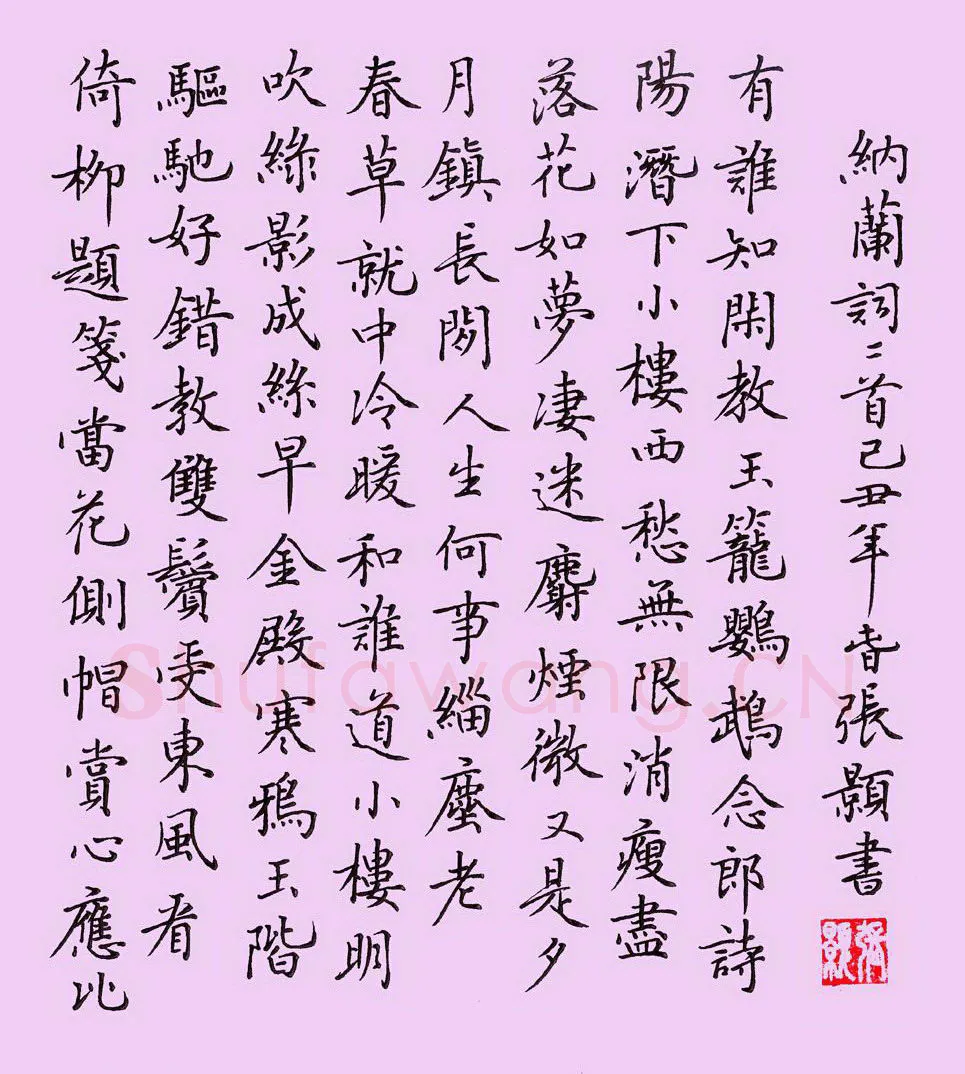 倚柳題箋當花側帽賞心應比
驅馳好錯教雙鬢受東風看
吹綠影成絲早金殿寒鴉玉階
春草就中冷暖和誰道小樓明
月鎮長閒人生何事緇塵老
落花如夢凄迷麝煙微又是夕
陽潛下小樓西愁無限消瘦盡
有誰知閑教玉籠鸚鵡念郎詩
納蘭詞二首己丑年旾張顥書
張顥
Shufawang.CN